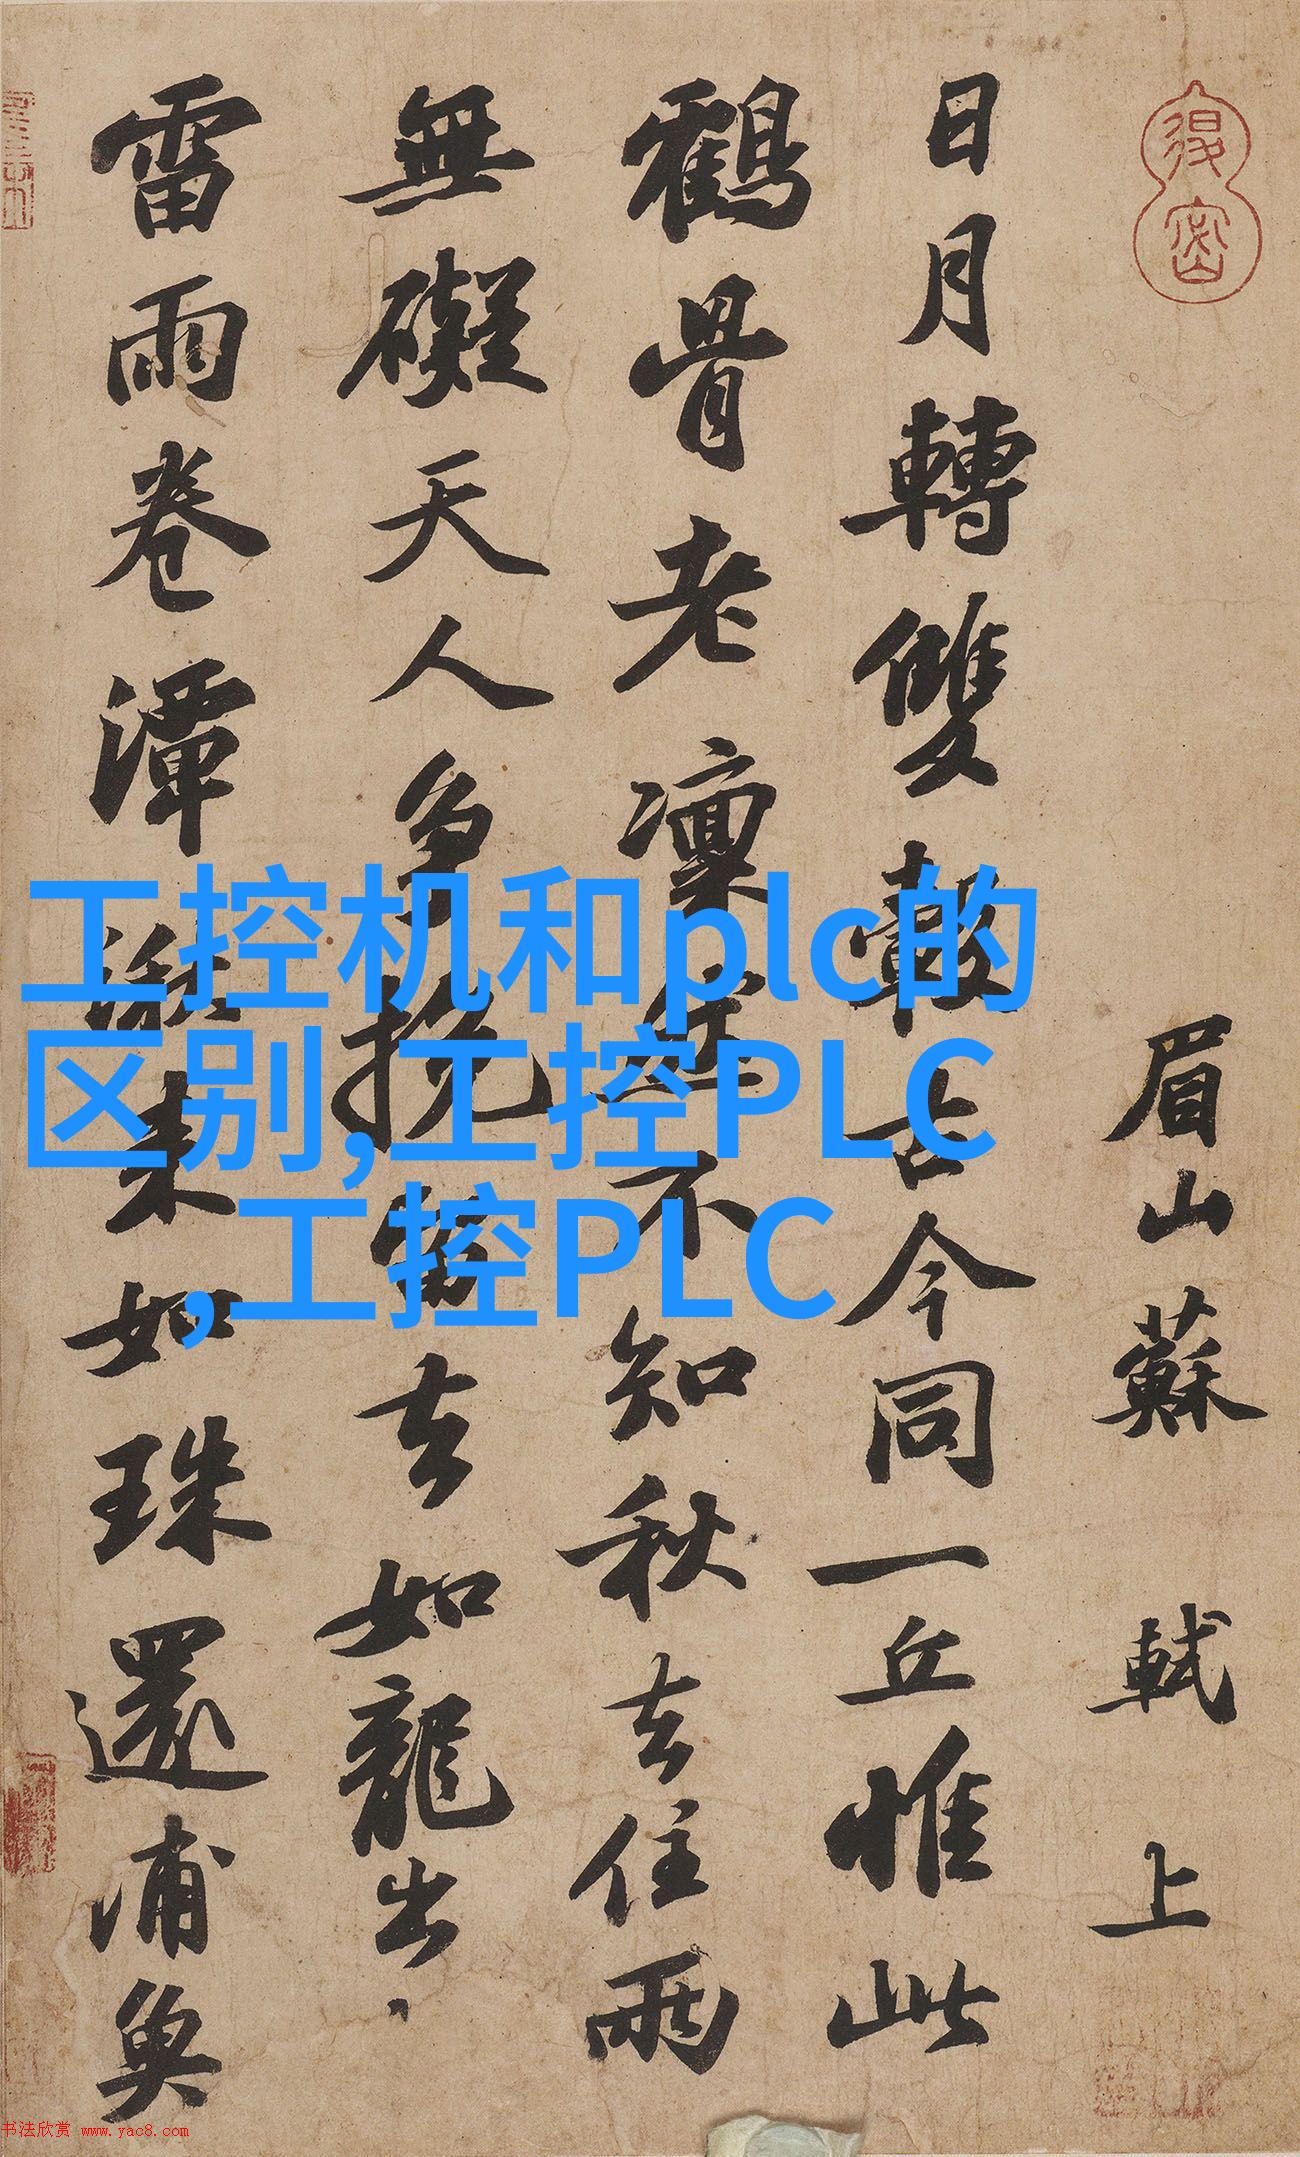 眉山蘇軾上
日月轉雙轂古今同一丘惟此
鶴骨老凜然不知秋去住兩
無礙天人爭挽留去如龍出
雷雨卷潭湫來如珠還浦魚
工控机和plc的
区别,工控PLC
,工控PLC
书法欣赏 www.yac8.com